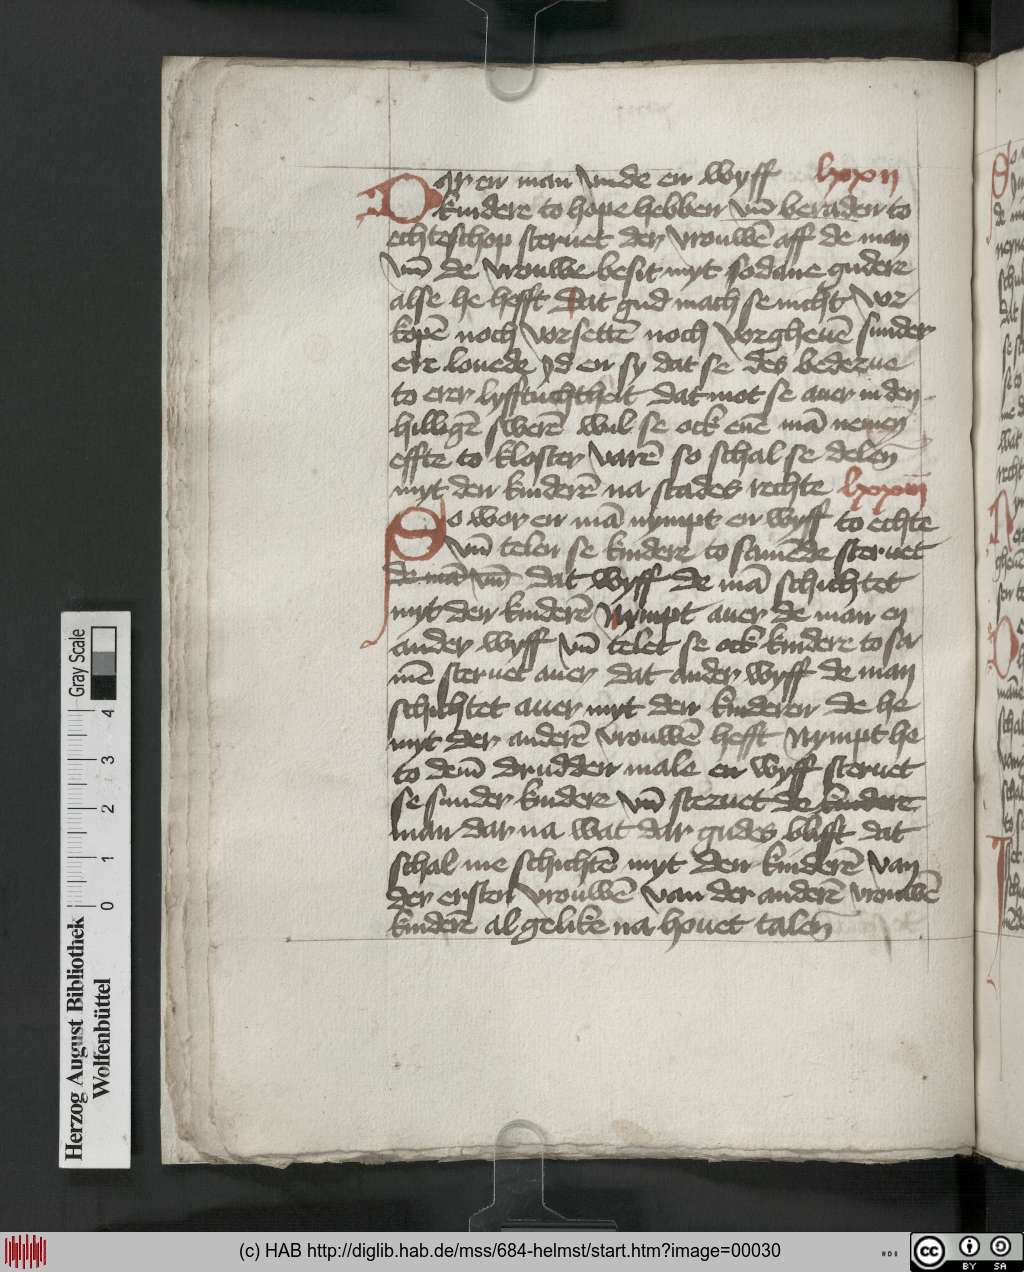 Dar en man vnde en wyff lxxii
kindere to hope hebben vn̄ beraden to
echteschop steruet der vrouwē aff de man
vn̄ de vrouwe besit myt sodane gudere
alse he hefft Dat gud mach se nicht vor
kopē noch vorsettē noch vorgheuē sunder
ere louede yd en sy dat se des bederue
to erer lyfftuchtheit dat mot se auer in den
hilligē swerē wil se ock enē mā nemen
effte to kloster varē so schal se delen
myt den kinderē na stades rechte lxxiii
So wor en mā nympt en wyff to echte
vn̄ telen se kindere to samēde steruet
de mā vn̄ dat wyff de mā schichtet
myt den kinderē Nympt auer de man en
ander wyff vn̄ telet se ock kindere to sa
mē steruet auer dat ander wyff de man
schichtet auer myt den kinderen de he
myt der anderē vrouwē hefft Nympt he
to dem̄ drudden male en wyff steruet
se sunder kindere vn̄ steruet de kindere
man dar na wat dar gudes blifft dat
schal me schichtē myt den kinderē van
der ersten vrouwē van der anderē vrouwē
kinderē al gelike na houet talen
Gray Scale
0 1 2 3 4
Herzog August Bibliothek
Wolfenbüttel
(c) HAB http://diglib.hab.de/mss/684-helmst/start.htm?image=00030
cc BY SA